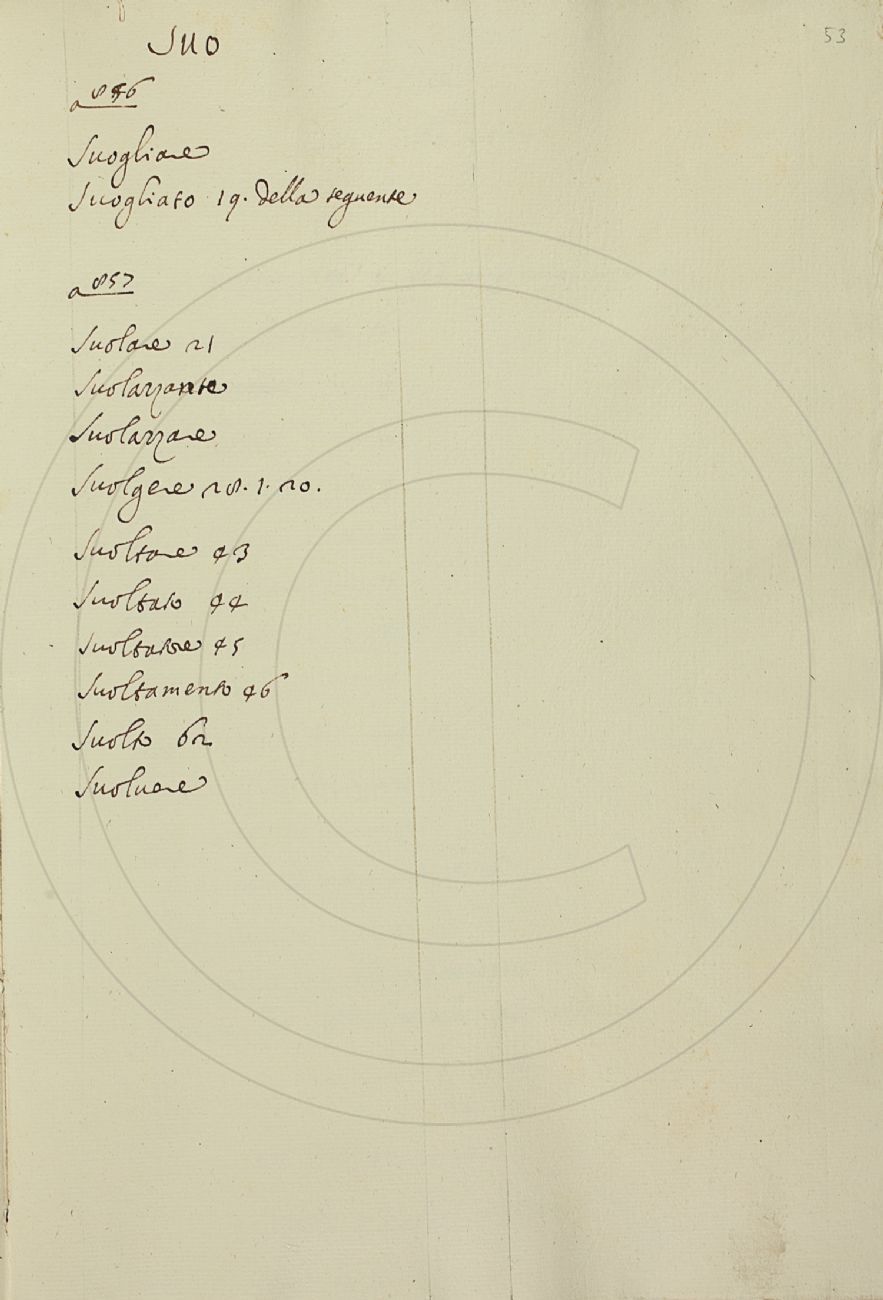 Suo
53
a 856
Suogliare
Suogliato 19. della seguente
a 857
Suolare 21
Suolazzante
Suolazzare
Suolgere 28. 1. 20.
Suoltare 43
Suoltato 44
Suoltatore 45
Suoltamento 46
Suolto 62
Suoluere